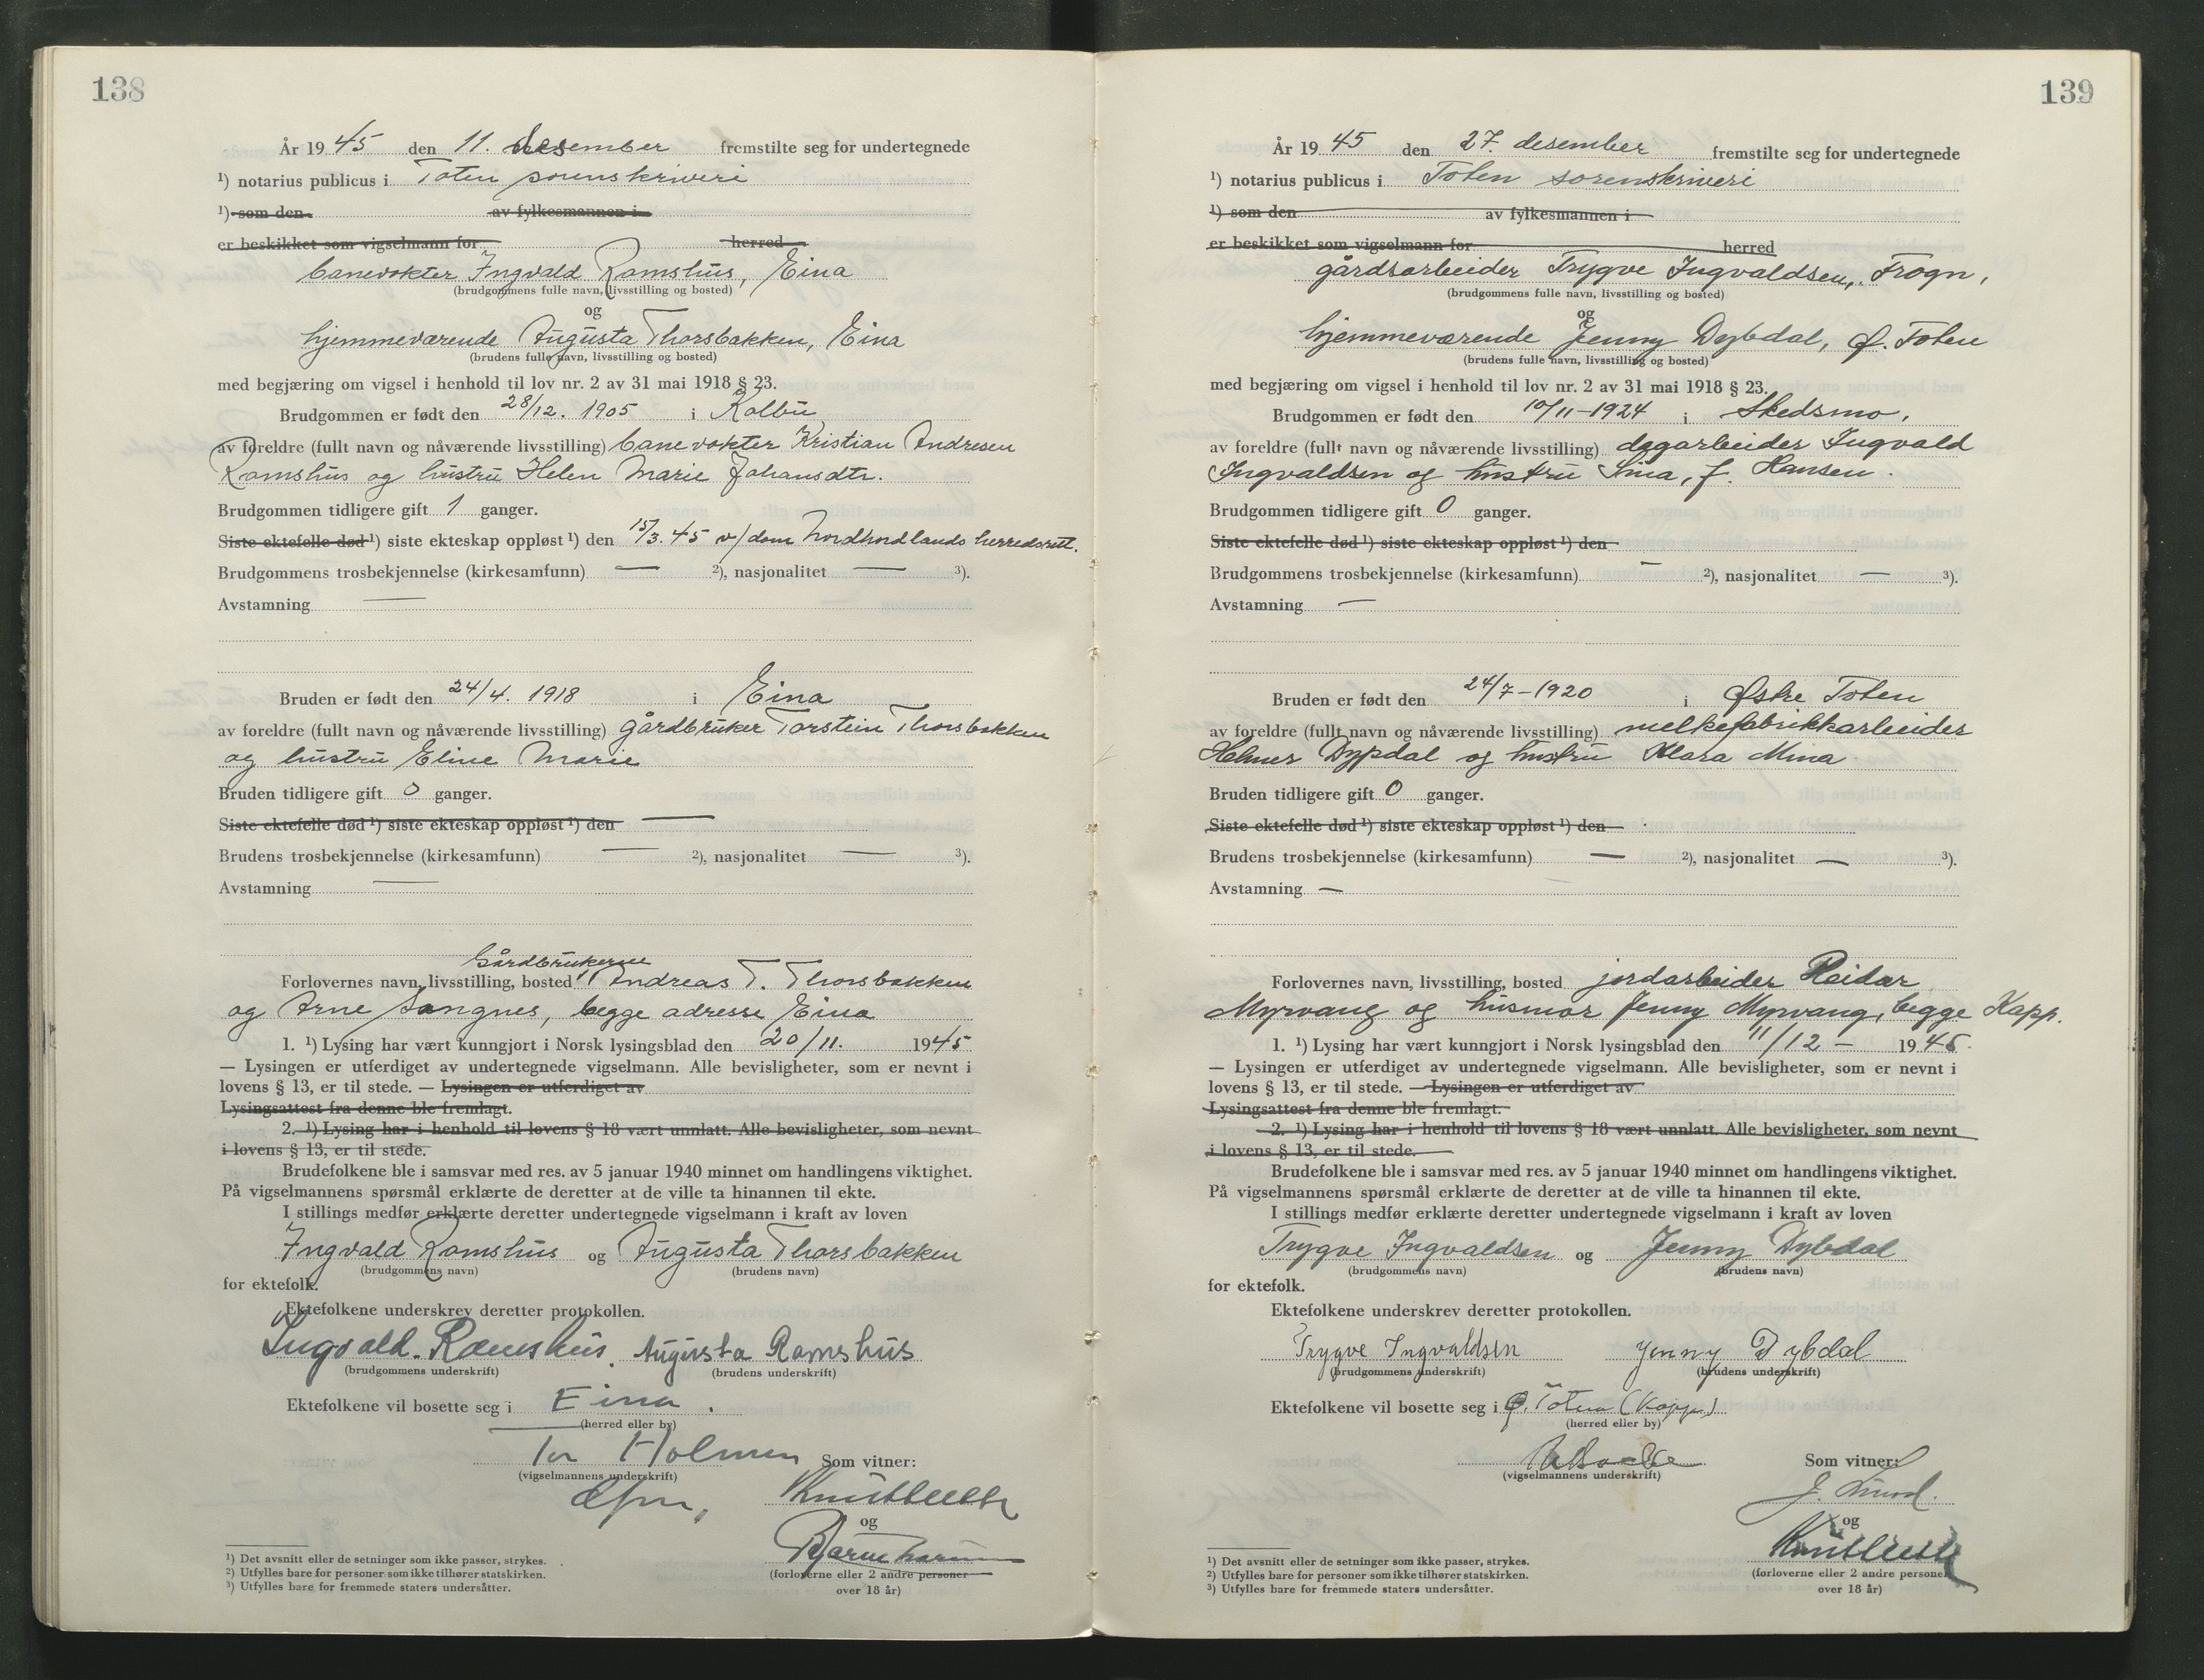 138
År 19 45 den 11. desember fremstilte seg for undertegnede
¹) notarius publicus i Toten sorenskriveri
¹) som den av fylkesmannen i
er beskikket som vigselmann for herred
banevokter Ingvald Ramshus, Eina
(brudgommens fulle navn, livsstilling og bosted)
og
hjemmeværende Augusta Thorsbakken, Eina
(brudens fulle navn, livsstilling og bosted)
med begjæring om vigsel i henhold til lov nr. 2 av 31 mai 1918 § 23.
Brudgommen er født den 28/12. 1905 i Kolbu
av foreldre (fullt navn og nåværende livsstilling) banevokter Kristian Andresen
Ramshus og hustru Helen Marie Johansdtr.
Brudgommen tidligere gift 1 ganger.
Siste ektefelle død ¹) siste ekteskap oppløst ¹) den 15/3. 45 v/dom Nordhordlands herredsrett.
Brudgommens trosbekjennelse (kirkesamfunn) — ²), nasjonalitet — ³).
Avstamning —
Bruden er født den 24/4. 1918 i Eina
av foreldre (fullt navn og nåværende livsstilling) gårdbruker Torstein Thorsbakken
og hustru Eline Marie
Bruden tidligere gift 0 ganger.
Siste ektefelle død ¹) siste ekteskap oppløst ¹) den —
Brudens trosbekjennelse (kirkesamfunn) — ²), nasjonalitet — ³).
Avstamning —
Gårdbrukerne
Forlovernes navn, livsstilling, bosted Andreas T. Thorsbakken
og Arne Sangnes, begge adresse Eina
1. ¹) Lysing har vært kunngjort i Norsk lysingsblad den 20/11. 1945
— Lysingen er utferdiget av undertegnede vigselmann. Alle bevisligheter, som er nevnt i
lovens § 13, er til stede. — Lysingen er utferdiget av
Lysingsattest fra denne ble fremlagt.
2. ¹) Lysing har i henhold til lovens § 18 vært unnlatt. Alle bevisligheter, som nevnt
i lovens § 13, er til stede.
Brudefolkene ble i samsvar med res. av 5 januar 1940 minnet om handlingens viktighet.
På vigselmannens spørsmål erklærte de deretter at de ville ta hinannen til ekte.
I stillings medfør erklærte deretter undertegnede vigselmann i kraft av loven
Ingvald Ramshus og Augusta Thorsbakken
(brudgommens navn) (brudens navn)
for ektefolk.
Ektefolkene underskrev deretter protokollen.
Ingvald. Ramshus. Augusta Ramshus
(brudgommens underskrift) (brudens underskrift)
Ektefolkene vil bosette seg i Eina.
(herred eller by)
Tor Holmen Som vitner:
(vigselmannens underskrift)
og
(forloverne eller 2 andre personer
over 18 år)
¹) Det avsnitt eller de setninger som ikke passer, strykes.
²) Utfylles bare for personer som ikke tilhører statskirken.
³) Utfylles bare for fremmede staters undersåtter.
139
År 19 45 den 27. desember fremstilte seg for undertegnede
¹) notarius publicus i Toten sorenskriveri
¹) som den av fylkesmannen i
er beskikket som vigselmann for herred
gårdsarbeider Trygve Ingvaldsen, Frogn,
(brudgommens fulle navn, livsstilling og bosted)
og
hjemmeværende Jenny Dybdal, Ø. Toten
(brudens fulle navn, livsstilling og bosted)
med begjæring om vigsel i henhold til lov nr. 2 av 31 mai 1918 § 23.
Brudgommen er født den 10/11-1924 i Skedsmo,
av foreldre (fullt navn og nåværende livsstilling) dagarbeider Ingvald
Ingvaldsen og hustru Lina, f. Hansen.
Brudgommen tidligere gift 0 ganger.
Siste ektefelle død ¹) siste ekteskap oppløst ¹) den
Brudgommens trosbekjennelse (kirkesamfunn) — ²), nasjonalitet — ³).
Avstamning —
Bruden er født den 24/7-1920 i Østre Toten
av foreldre (fullt navn og nåværende livsstilling) melkefabrikkarbeider
Helmer Dypdal og hustru Klara Mina
Bruden tidligere gift 0 ganger.
Siste ektefelle død ¹) siste ekteskap oppløst ¹) den
Brudens trosbekjennelse (kirkesamfunn) — ²), nasjonalitet — ³).
Avstamning —
Forlovernes navn, livsstilling, bosted jordarbeider Reidar
Myrvang og husmor Jenny Myrvang, begge Kapp.
1. ¹) Lysing har vært kunngjort i Norsk lysingsblad den 11/12 — 1945.
— Lysingen er utferdiget av undertegnede vigselmann. Alle bevisligheter, som er nevnt i
lovens § 13, er til stede. — Lysingen er utferdiget av
Lysingsattest fra denne ble fremlagt.
2. ¹) Lysing har i henhold til lovens § 18 vært unnlatt. Alle bevisligheter, som nevnt
i lovens § 13, er til stede.
Brudefolkene ble i samsvar med res. av 5 januar 1940 minnet om handlingens viktighet.
På vigselmannens spørsmål erklærte de deretter at de ville ta hinannen til ekte.
I stillings medfør erklærte deretter undertegnede vigselmann i kraft av loven
Trygve Ingvaldsen og Jenny Dybdal
(brudgommens navn) (brudens navn)
for ektefolk.
Ektefolkene underskrev deretter protokollen.
Trygve Ingvaldsen Jenny Dybdal
(brudgommens underskrift) (brudens underskrift)
Ektefolkene vil bosette seg i Ø. Toten (Kapp)
(herred eller by)
Som vitner:
(vigselmannens underskrift)
J. Lund.
og
(forloverne eller 2 andre personer
over 18 år)
¹) Det avsnitt eller de setninger som ikke passer, strykes.
²) Utfylles bare for personer som ikke tilhører statskirken.
³) Utfylles bare for fremmede staters undersåtter.